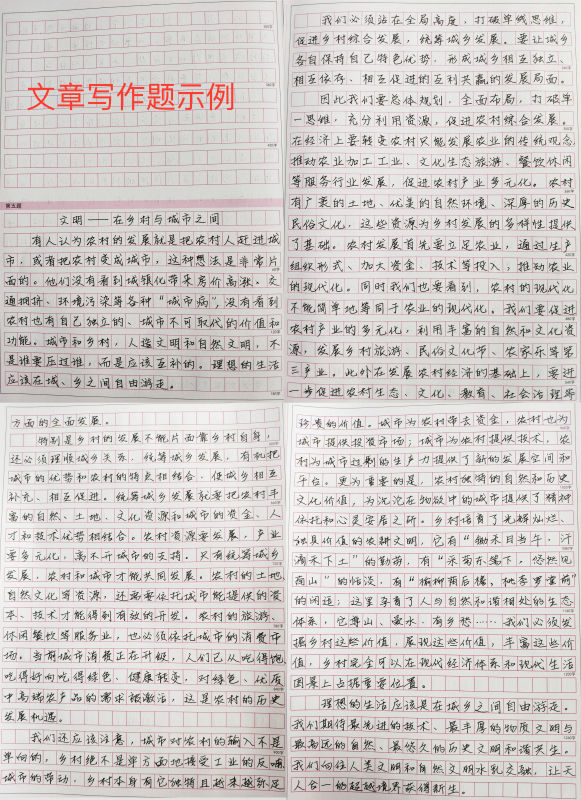 文章写作题示例
第五题
文明——在乡村与城市之间
有人认为农村的发展就是把农村人赶进城
市，或者把农村变成城市，这种想法是非常片
面的。他们没有看到城镇化带来房价高涨、交
通拥挤、环境污染等各种“城市病”，没有看到
农村也有自己独立的、城市不可取代的价值和
功能。城市和乡村，人造文明和自然文明，不
是谁要压过谁，而是应该互补的。理想的生活
应该在城、乡之间自由游走。
我们必须站在全局高度，打破单线思维，
促进乡村综合发展，统筹城乡发展。要让城乡
各自保持自己特色优势，形成城乡相互独立、
相互依存、相互促进的互利共赢的发展局面。
因此我们要总体规划，全面布局，打破单
一思维，充分利用资源，促进农村综合发展。
在经济上要转变农村只能发展农业的传统观念，
推动农业加工工业、文化生态旅游、餐饮休闲
等服务行业发展，促进农村产业多元化。农村
有广袤的土地、优美的自然环境、深厚的历史
民俗文化，这些资源为乡村发展的多样性提供
了基础。农村发展首先要立足农业，通过生产
组织形式、加大资金、技术等投入，推动农业
的现代化。同时我们也要看到，农村的现代化
不能简单地等同于农业的现代化。我们要促进
农村产业的多元化，利用丰富的自然和文化资
源，发展乡村旅游、民俗文化节、农家乐等第
三产业。此外在发展农村经济的基础上，要进
一步促进农村生态、文化、教育、社会治理等
方面的全面发展。
特别是乡村的发展不能片面靠乡村自身，
还必须理顺城乡关系，统筹城乡发展，有机把
城市的优势和农村的特点相结合，使城乡相互
补充、相互促进。统筹城乡发展就要把农村丰
富的自然、土地、文化资源和城市的资金、人
才和技术优势相结合。农村资源要发展，产业
要多元化，离不开城市的支持。只有统筹城乡
发展，农村和城市才能共同发展。农村的土地、
自然文化等资源，还需要依托城市能提供的资
本、技术才能得到有效的开发。农村的旅游、
休闲餐饮等服务业，也必须依托城市的消费市
场。当前城市消费正在升级，人们已从吃得饱、
吃得好向吃得绿色、健康转变，对绿色、优质
中高端农产品的需求被激活，这是农村的历史
发展机遇。
我们还应该注意，城市对农村的输入不是
单向的，乡村绝不是单方面地接受工业的反哺、
城市的带动，乡村本身有它独特且越来越弥足
珍贵的价值。城市为农村带去资金，农村也为
城市提供投资市场；城市为农村提供技术，农
村为城市过剩的生产力提供了新的发展空间和
平台。更为重要的是，农村独特的自然和历史
文化价值，为沉沦在物欲中的城市提供了精神
依托和心灵安居之所。乡村培育了光辉灿烂、
独具价值的农耕文明，它有“锄禾日当午，汗
滴禾下土”的勤劳，有“采菊东篱下，悠然见
南山”的恬淡，有“榆柳荫后檐，桃李罗堂前”
的闲适；这里孕育了人与自然和谐相处的生态
体系，它靠山、爱水、有乡愁……我们必须发
掘乡村这些价值，展现这些价值，丰富这些价
值，乡村完全可以在现代经济体系和现代生活
图景上占据重要位置。
理想的生活应该是在城乡之间自由游走。
我们期待最先进的技术、最丰厚的物质文明与
最高远的自然、最悠久的历史文明和谐共生。
我们向往人类文明和自然文明水乳交融，让天
人合一的超越境界获得新生。